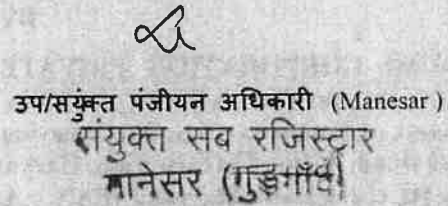 उप/सयुंक्त पंजीयन अधिकारी (Manesar )
संयुक्त सब रजिस्ट्रार
मानेसर (गुड़गाँव)